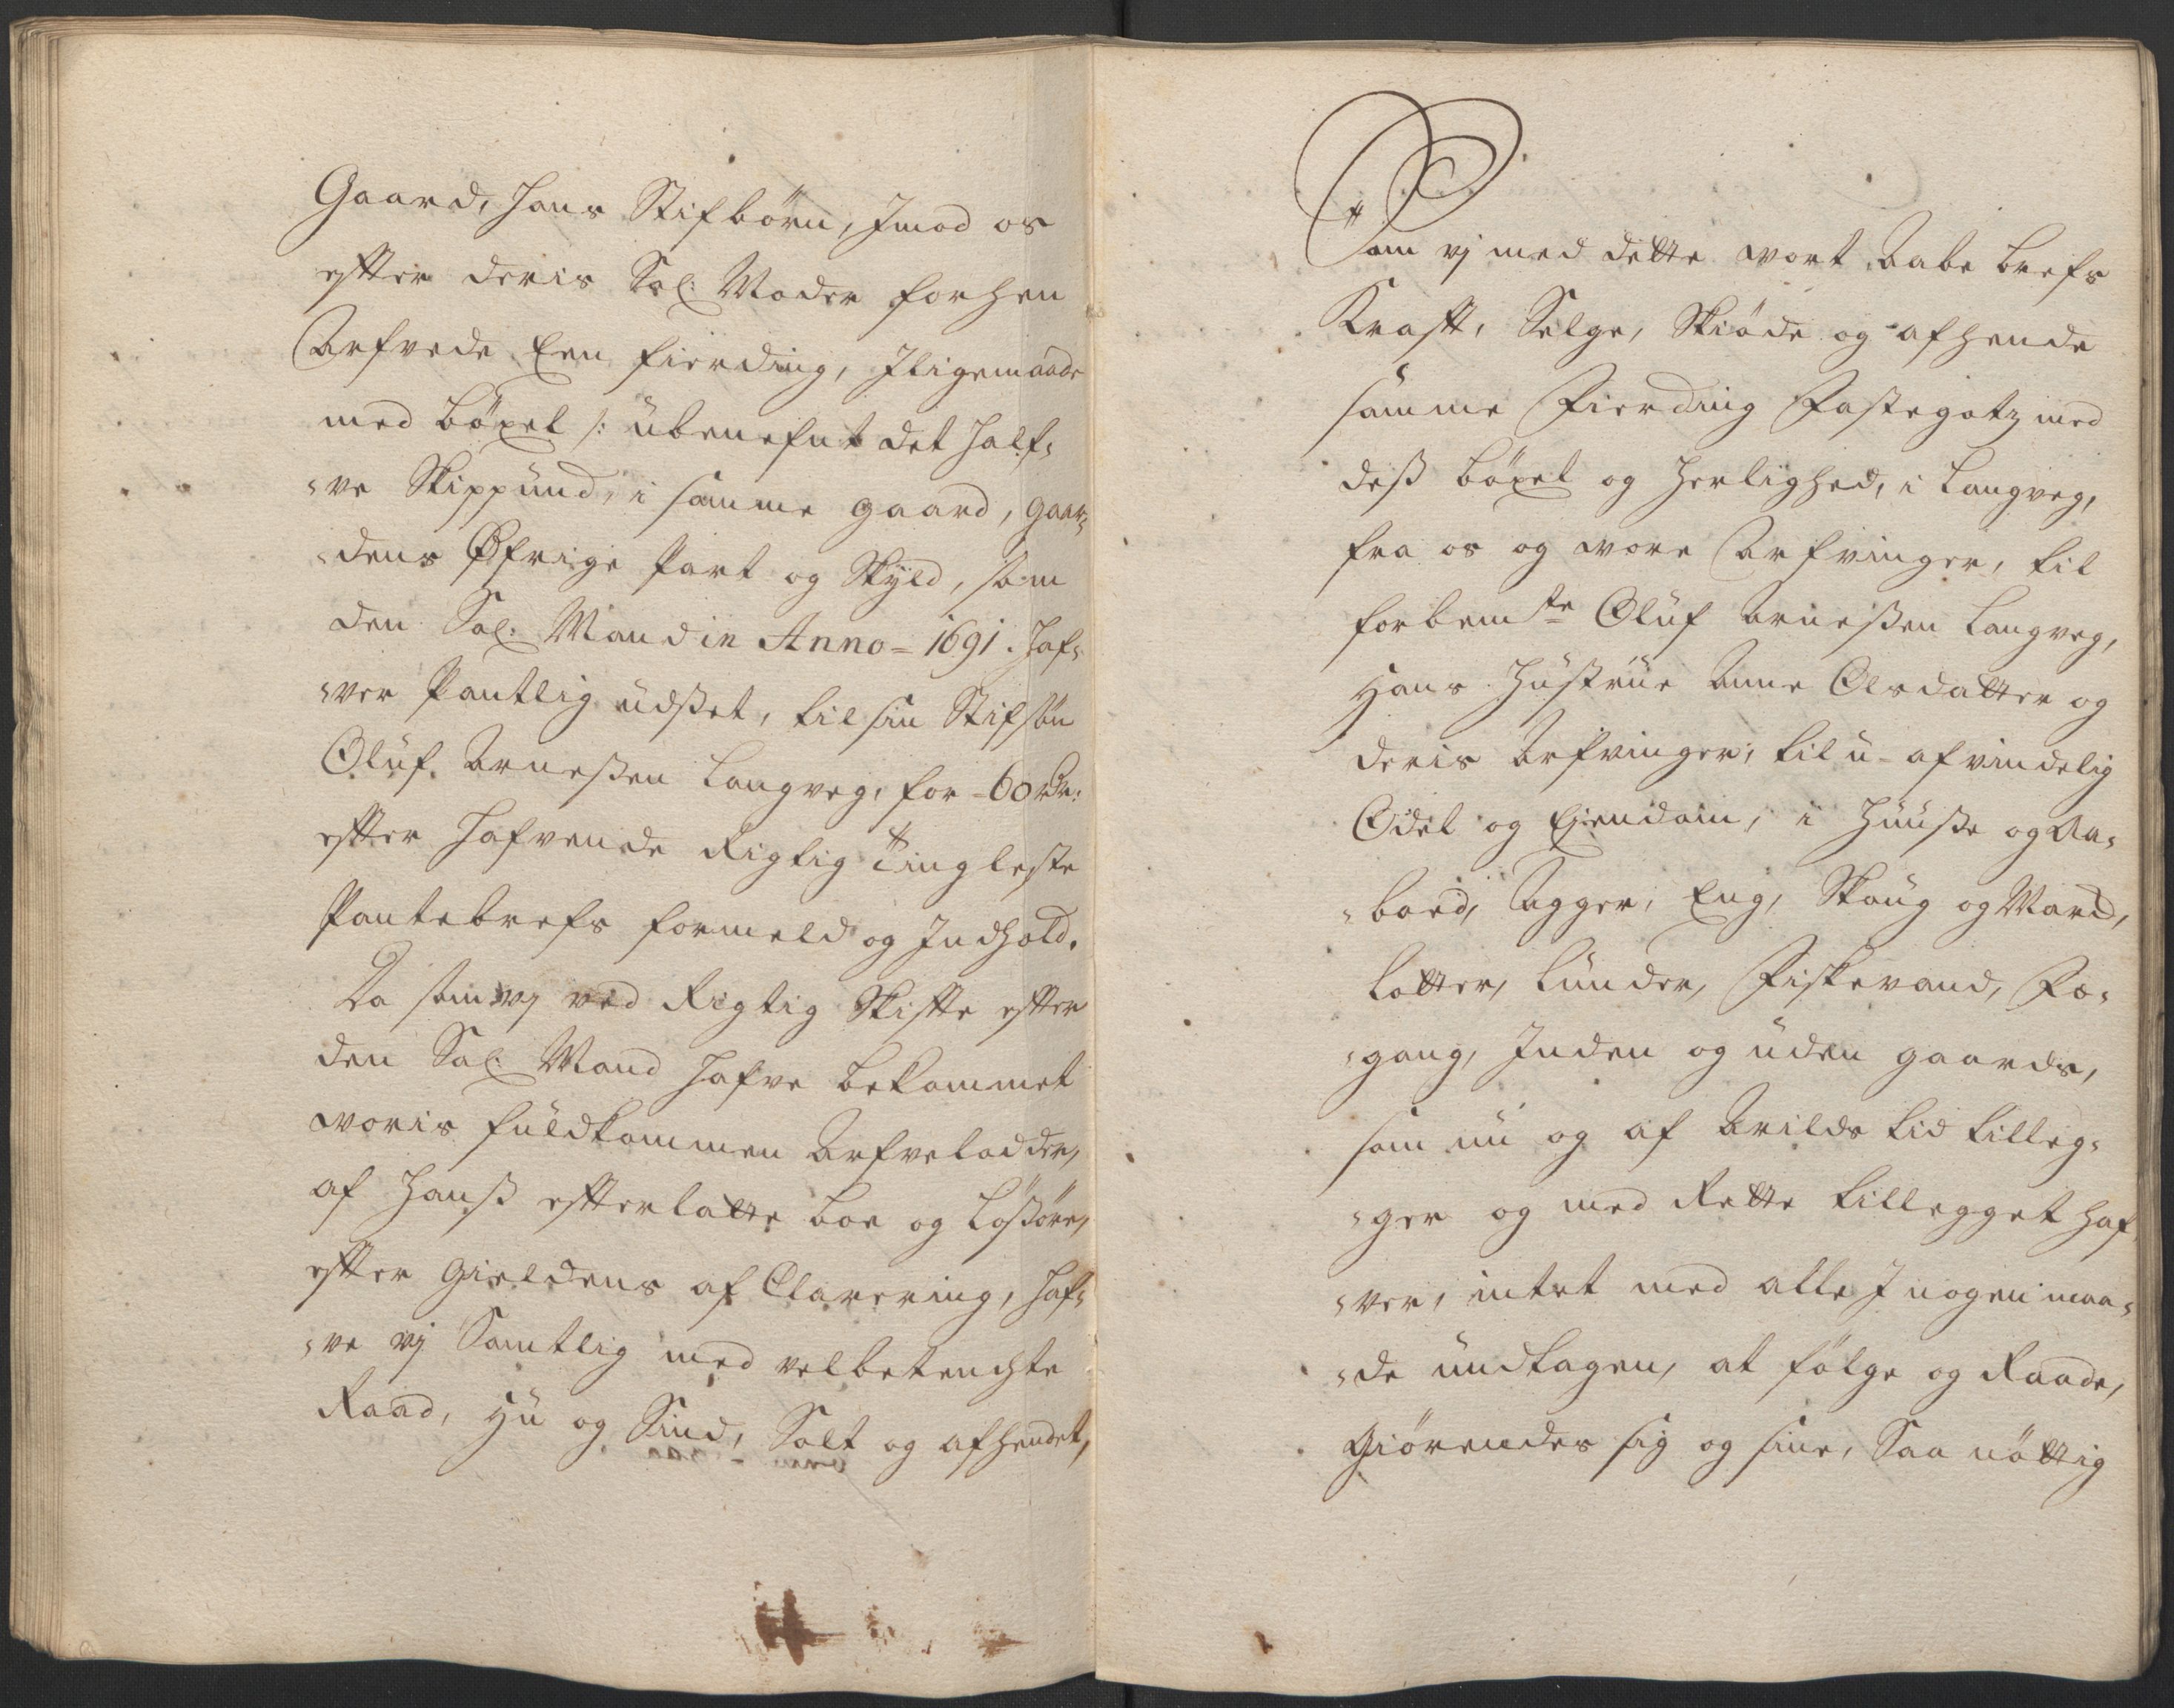 Gaard, hans Stifbörn, Imod os
efter deris Sal: Moder forhen
Arfvede Een fierding, Iligemaade
med böxel /: übenefnt det half-
-ve Skippünd, i samme gaard, gaar-
-dens Øfrige Part og Skÿld, som
den Sal: Mand in Anno = 1691. haf-
-ver Pantlig üdsat, til sin Stifsön
Olüf Arneßen Langveg, for = 60 rdr:
efter hafvende Rigtig Tingleste
Pantebrefs formeld og Indhold.
Da som vj ved Rigtig Skifte efter
den Sal: Mand hafve bekommet
voris füldkommen Arfvelodder,
af hanß efterlatte boe og Lößöre,
efter Gieldens af Clarering, haf-
-ve vj Samtlig med velbetenchte
Raad, Hü og Sind, Solt og afhendet,
Som vj med dette vort Aabe brefs
Kraft, Selge, Skiöde og afhende
samme Fierding Fastegotz med
deß böxel og herlighed, i Langveg,
fra os og vore Arfvinger, til
forbemte Olüf Arneßen Langveg,
Hans Hüstrüe Anne Olsdatter og
deris Arfvinger, til ü-afvindelig
Odel og Ejendom, i Hüüße og Aa-
-boed, Agger, Eng, Skoug og Mard,
Lotter, Lünder, Fiskevand, Fæ-
-gang, Inden og üden gaards,
som nü og af Arilds tid tilleg-
-ger og med Rette tillegget haf
-ver, intet med alle I nogen maa-
-de ündtagen, at fölge og Raade,
Giörendes sig og sine, Saa nöttig